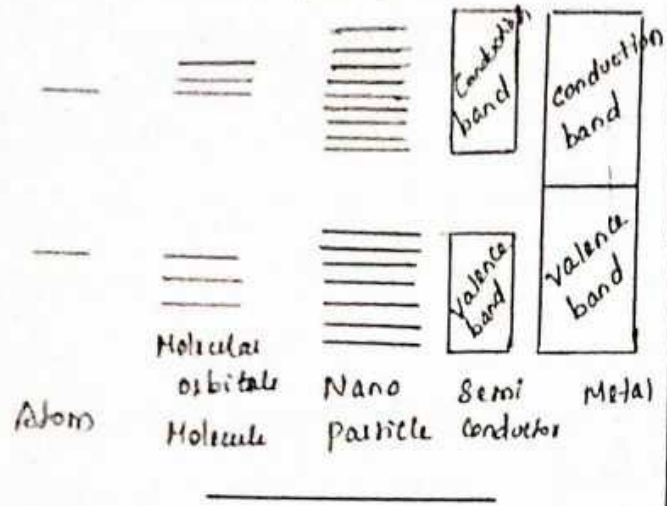 Conduction
band
conduction
band
Valence
band
Valence
band
Molecular
orbitals
Atom
Molecule
Nano
Particle
Semi
Conductor
Metal